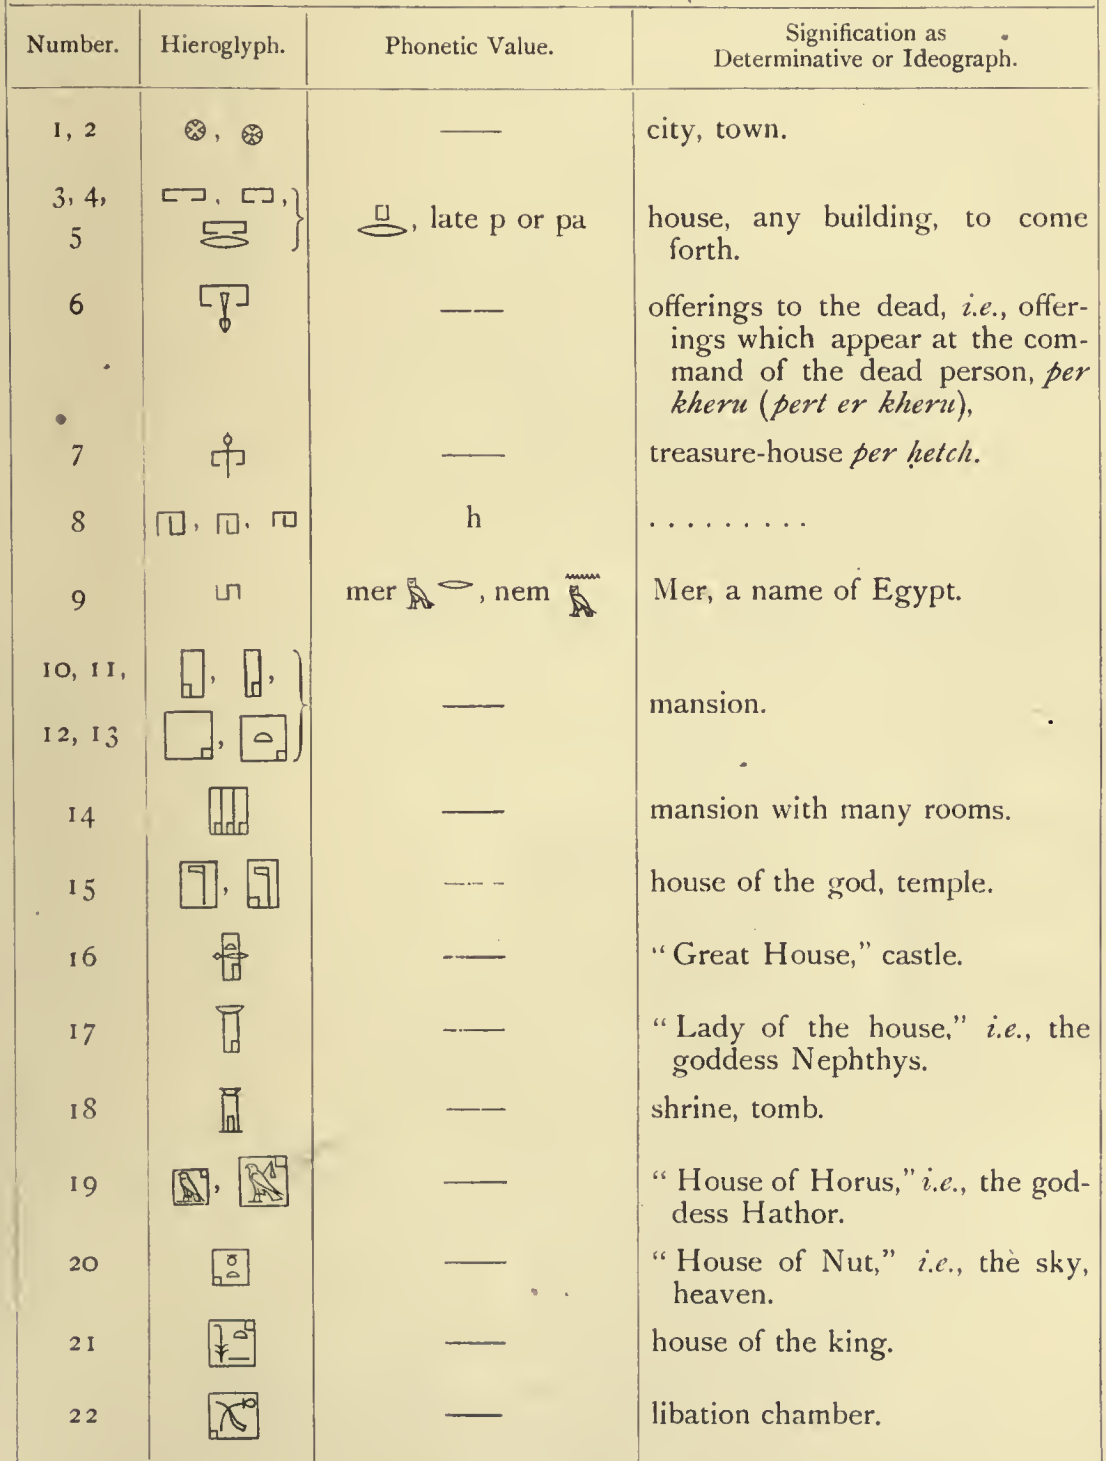 Number. Hieroglyph. Phonetic Value. Signification as
Determinative or Ideograph.
1, 2 𓊖, 𓊖 —— city, town.
3, 4, 𓉐, 𓉐,
5 𓉐𓂋 𓊪𓂋, late p or pa house, any building, to come
forth.
6 𓉓 —— offerings to the dead, i.e., offer-
ings which appear at the com-
mand of the dead person, per
kheru (pert er kheru),
7 𓉑 —— treasure-house per ḥetch.
8 𓉔, 𓉔, 𓉔 h . . . . . . . . .
9 mer 𓅓𓂋, nem 𓈖𓅓 Mer, a name of Egypt.
10, 11, 𓉗, 𓉗,
12, 13 —— mansion.
14 —— mansion with many rooms.
15 —— house of the god, temple.
16 —— “Great House,” castle.
17 𓉠 —— “Lady of the house,” i.e., the
goddess Nephthys.
18 —— shrine, tomb.
19 𓉡, 𓉡 —— “House of Horus,” i.e., the god-
dess Hathor.
20 —— “House of Nut,” i.e., the sky,
heaven.
21 —— house of the king.
22 —— libation chamber.